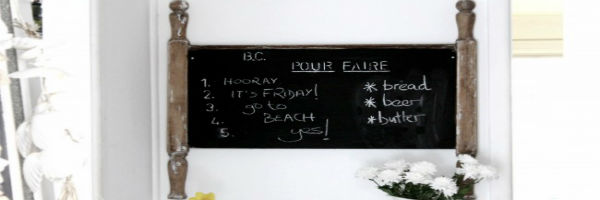 B.C.
POUR FAIRE
1. HOORAY
2. IT'S FRIDAY!
3. go to
4. BEACH
5. yes!
* bread
* beer
* butter